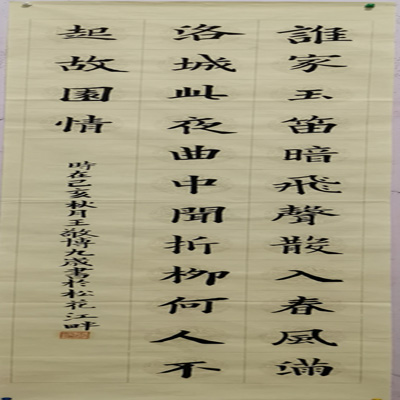 誰家玉笛暗飛聲散入春風滿
洛城此夜曲中聞折柳何人不
起故園情
時在己亥秋月王敬博九歲書於松花江畔